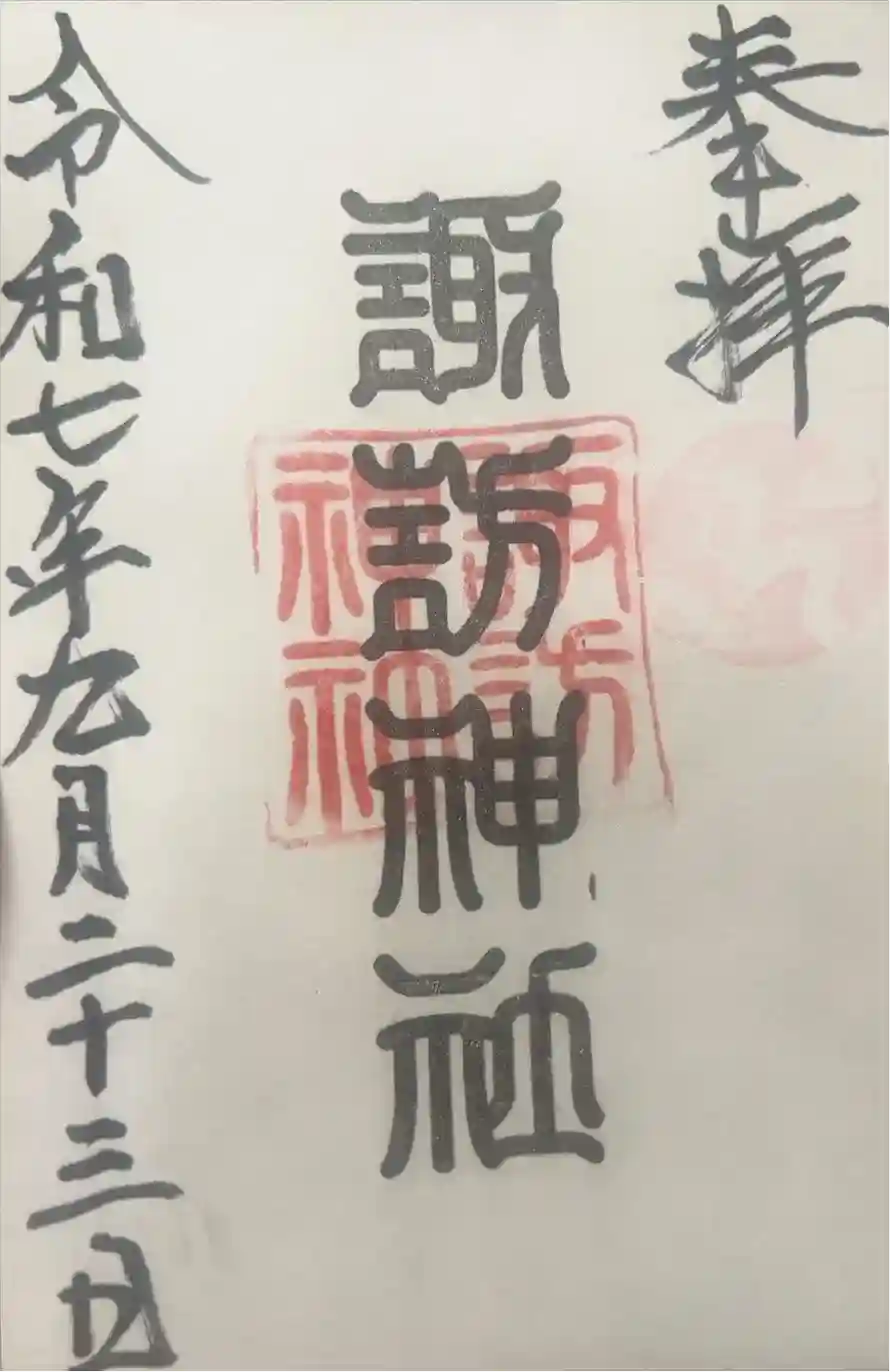 奉拝
諏訪神社
諏訪
神社
令和七年九月二十三日